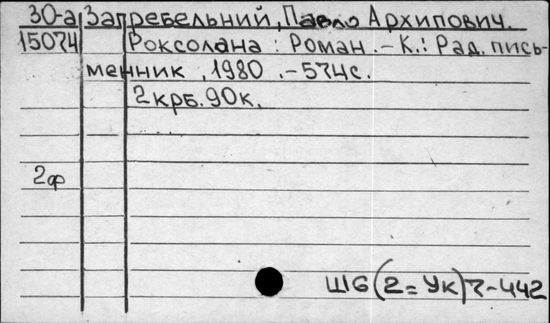 30-а Загребельний, Павло Архипович.
15074 Роксолана : Роман. – К.: Рад. пись-
менник, 1980. – 574с.
2крб. 90к.
2ф
Ш6(2=Ук)7-442